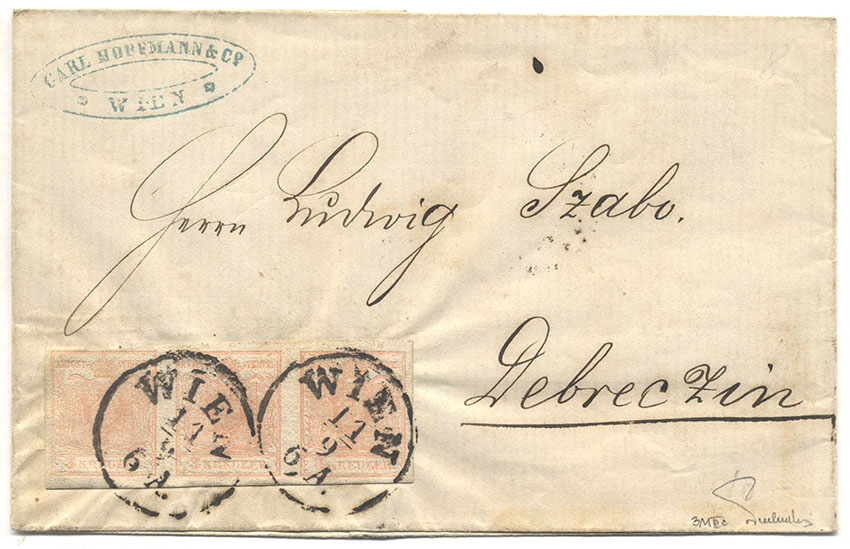 CARL HOFFMANN & Cº
WIEN
Herrn Ludwig Szabo.
Debreczin
WIEN
11
9
6.A.
WIEN
11
9
6.A.
3 KREUZER
3 KREUZER
3 KREUZER